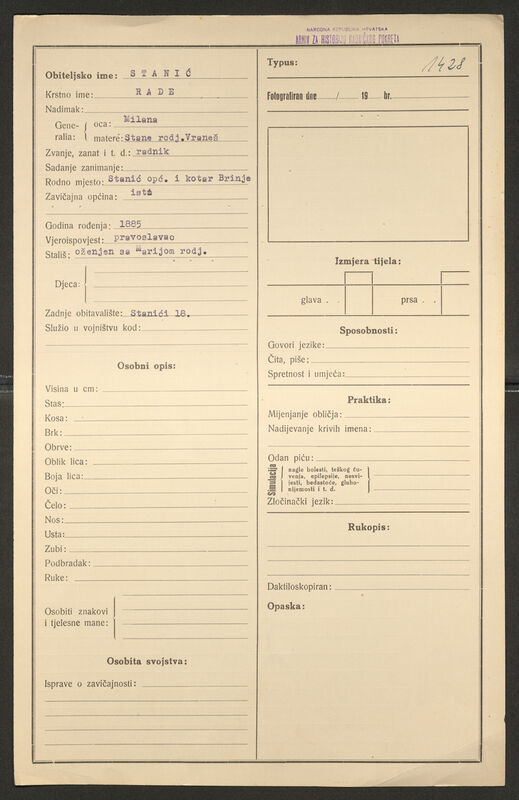 NARODNA REPUBLIKA HRVATSKA
ARHIV ZA HISTORIJU RADNIČKOG POKRETA
Obiteljsko ime: STANIĆ
Krstno ime: RADE
Nadimak:
Gene-
ralia:
oca: Milana
materé: Stane rodj. Vraneš
Zvanje, zanat i t. d.: radnik
Sadanje zanimanje:
Rodno mjesto: Stanić opć. i kotar Brinje
Zavičajna općina: ista
Godina rođenja: 1885
Vjeroispovjest: pravoslavac
Stališ: oženjen sa Marijom rodj.
Djeca:
Zadnje obitavalište: Stanići 18.
Služio u vojništvu kod:
Osobni opis:
Visina u cm:
Stas:
Kosa:
Brk:
Obrve:
Oblik lica:
Boja lica:
Oči:
Čelo:
Nos:
Usta:
Zubi:
Podbradak:
Ruke:
Osobiti znakovi
i tjelesne mane:
Osobita svojstva:
Isprave o zavičajnosti:
Typus: 1428
Fotografiran dne / 19 br.
Izmjera tijela:
glava . . prsa . .
Sposobnosti:
Govori jezike:
Čita, piše:
Spretnost i umjeća:
Praktika:
Mijenjanje obličja:
Nadijevanje krivih imena:
Odan piću:
Simulacija
nagle bolesti, teškog ću-
venja, epilepsije, nesvi-
jesti, bedastoće, gluho-
nijemosti i t. d.
Zločinački jezik:
Rukopis:
Daktiloskopiran:
Opaska: